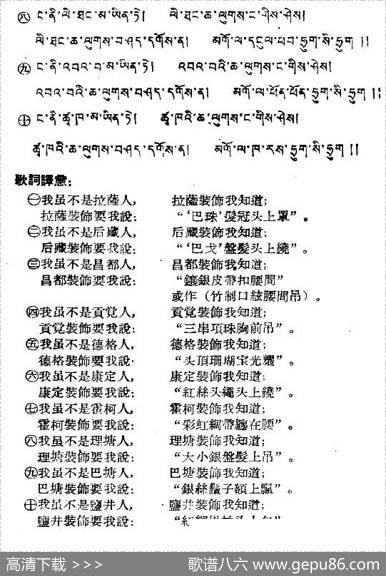 ㊇ ང་ནི་ལེ་ཐང་མ་ཡིན་ཏེ། ལེ་ཐང་ཆ་ལུགས་ང་གིས་ཤེས།
ལི་ཐང་ཆ་ལུགས་བཤད་དགོས་ན། མགོ་ལ་དངུལ་ཕབ་ཧྲུག་སི་ཧྲུག །།
㊈ ང་ནི་འབའ་བ་མ་ཡིན་ཏེ། འབའ་བའི་ཆ་ལུགས་ང་གིས་ཤེས།
འབའ་བའི་ཆ་ལུགས་བཤད་དགོས་ན། མགོ་ལ་ཕོན་ཕོན་ཧྲུག་སི་ཧྲུག །།
㊉ ང་ནི་ཚྭ་ཁ་མ་ཡིན་ཏེ། ཚྭ་ཁའི་ཆ་ལུགས་ང་གིས་ཤེས།
ཚྭ་ཁའི་ཆ་ལུགས་བཤད་དགོས་ན། མགོ་ལ་ཁ་རས་ཧྲུག་སི་ཧྲུག །།
歌詞譯意:
㊀我虽不是拉薩人, 拉薩裝飾我知道;
拉薩裝飾要我說: “‘巴珠’髮冠头上罩”。
㊁我虽不是后藏人, 后藏裝飾我知道;
后藏裝飾要我說: “‘巴戈’盤髮头上繞”。
㊂我虽不是昌都人, 昌都裝飾我知道;
昌都裝飾要我說: “鑲銀皮帶扣腰間”
或作(竹制口絃腰間吊)。
㊃我虽不是貢覚人, 貢覚裝飾我知道;
貢覚裝飾要我說: “三串項珠胸前吊”。
㊄我虽不是德格人, 德格裝飾我知道;
德格裝飾要我說: “头頂珊瑚宝光耀”。
㊅我虽不是康定人, 康定裝飾我知道;
康定裝飾要我說: “紅絲头繩头上繞”。
㊆我虽不是霍柯人, 霍柯裝飾我知道;
霍柯裝飾要我說: “彩虹綢帶纏在腰”。
㊇我虽不是理塘人, 理塘裝飾我知道;
理塘裝飾要我說: “大小銀盤髮上吊”。
㊈我虽不是巴塘人, 巴塘裝飾我知道;
巴塘裝飾要我說: “銀絲鬚子額上飄”。
㊉我虽不是鹽井人, 鹽井裝飾我知道;
鹽井裝飾要我說:
高清下载 >>> 歌谱八六 www.gepu86.com